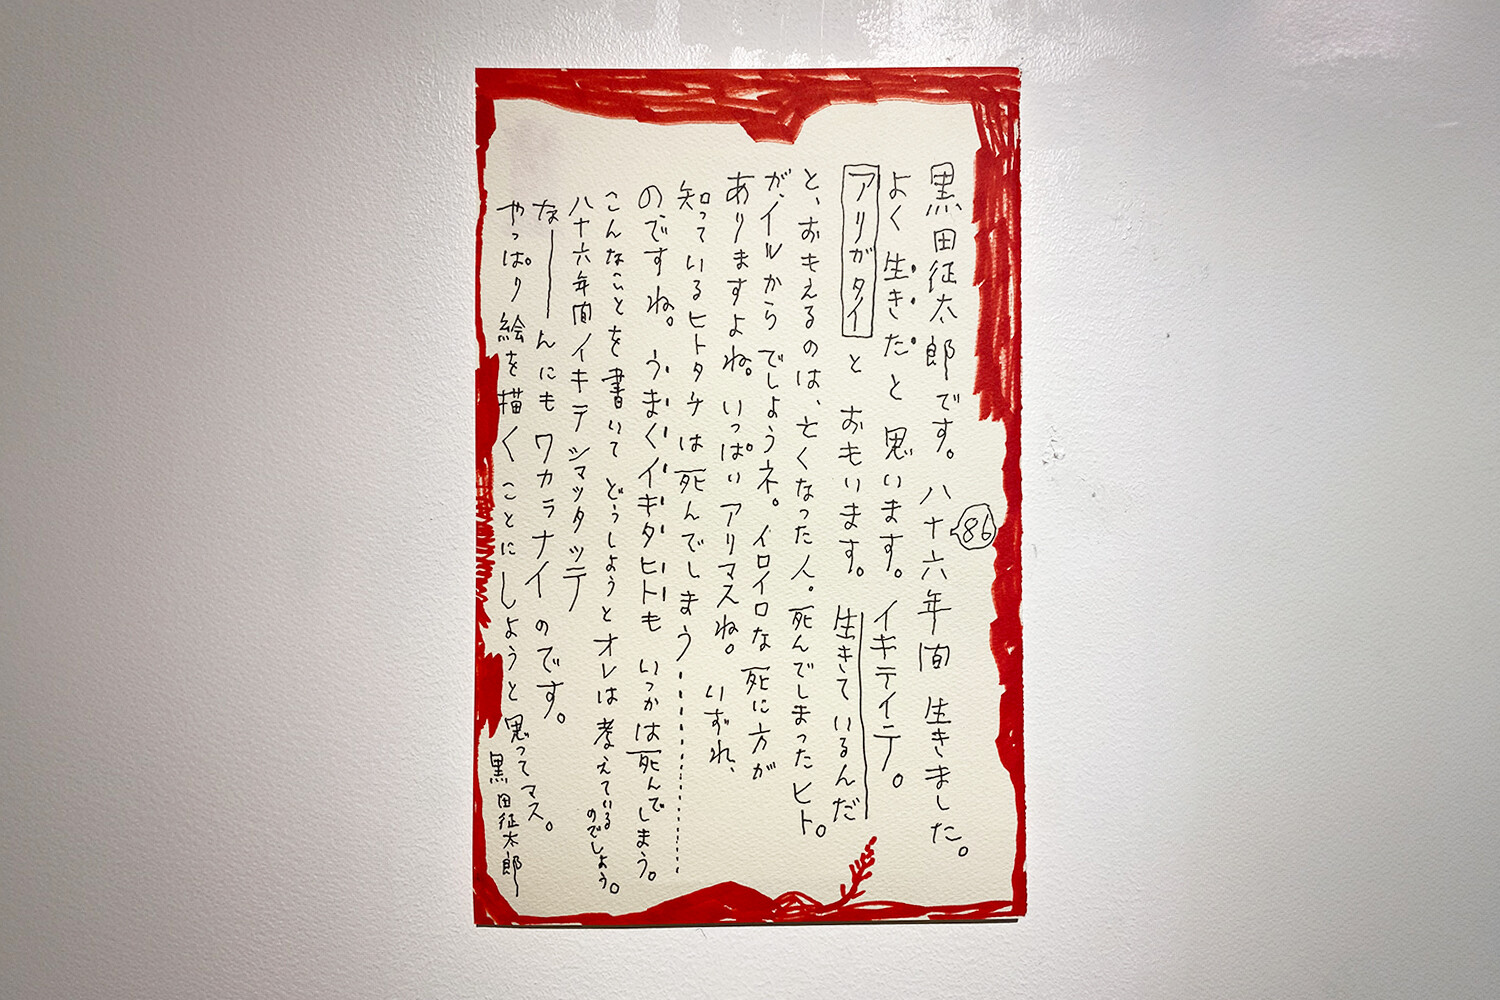 86
黒田征太郎です。八十六年間 生きました。
よく生きたと思います。イキテイテ。
アリガタイ とおもいます。生きているんだ
と、おもえるのは、亡くなった人。死んでしまったヒト。
が、イルからでしょうネ。イロイロな死に方が
ありますよね。いっぱいアリマスね。いずれ、
知っているヒトタチは死んでしまう……………
のですね。うまくイキタヒトも いつかは死んでしまう。
こんなことを書いてどうしようとオレは考えているのでしょう。
八十六年間イキテシマッタッテ
な――んにもワカラナイのです。
やっぱり絵を描くことにしようと思ってマス。
黒田征太郎